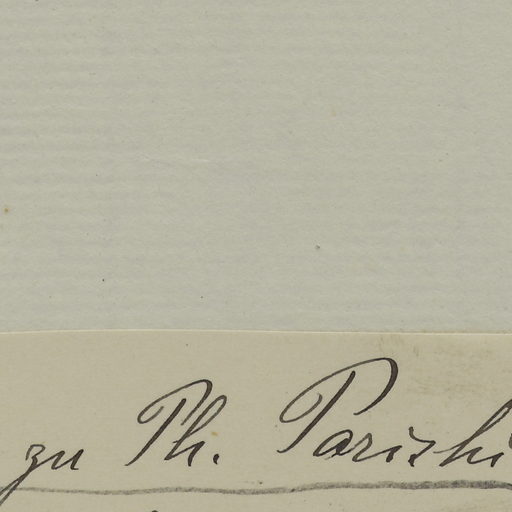 zu Ph. Parishi